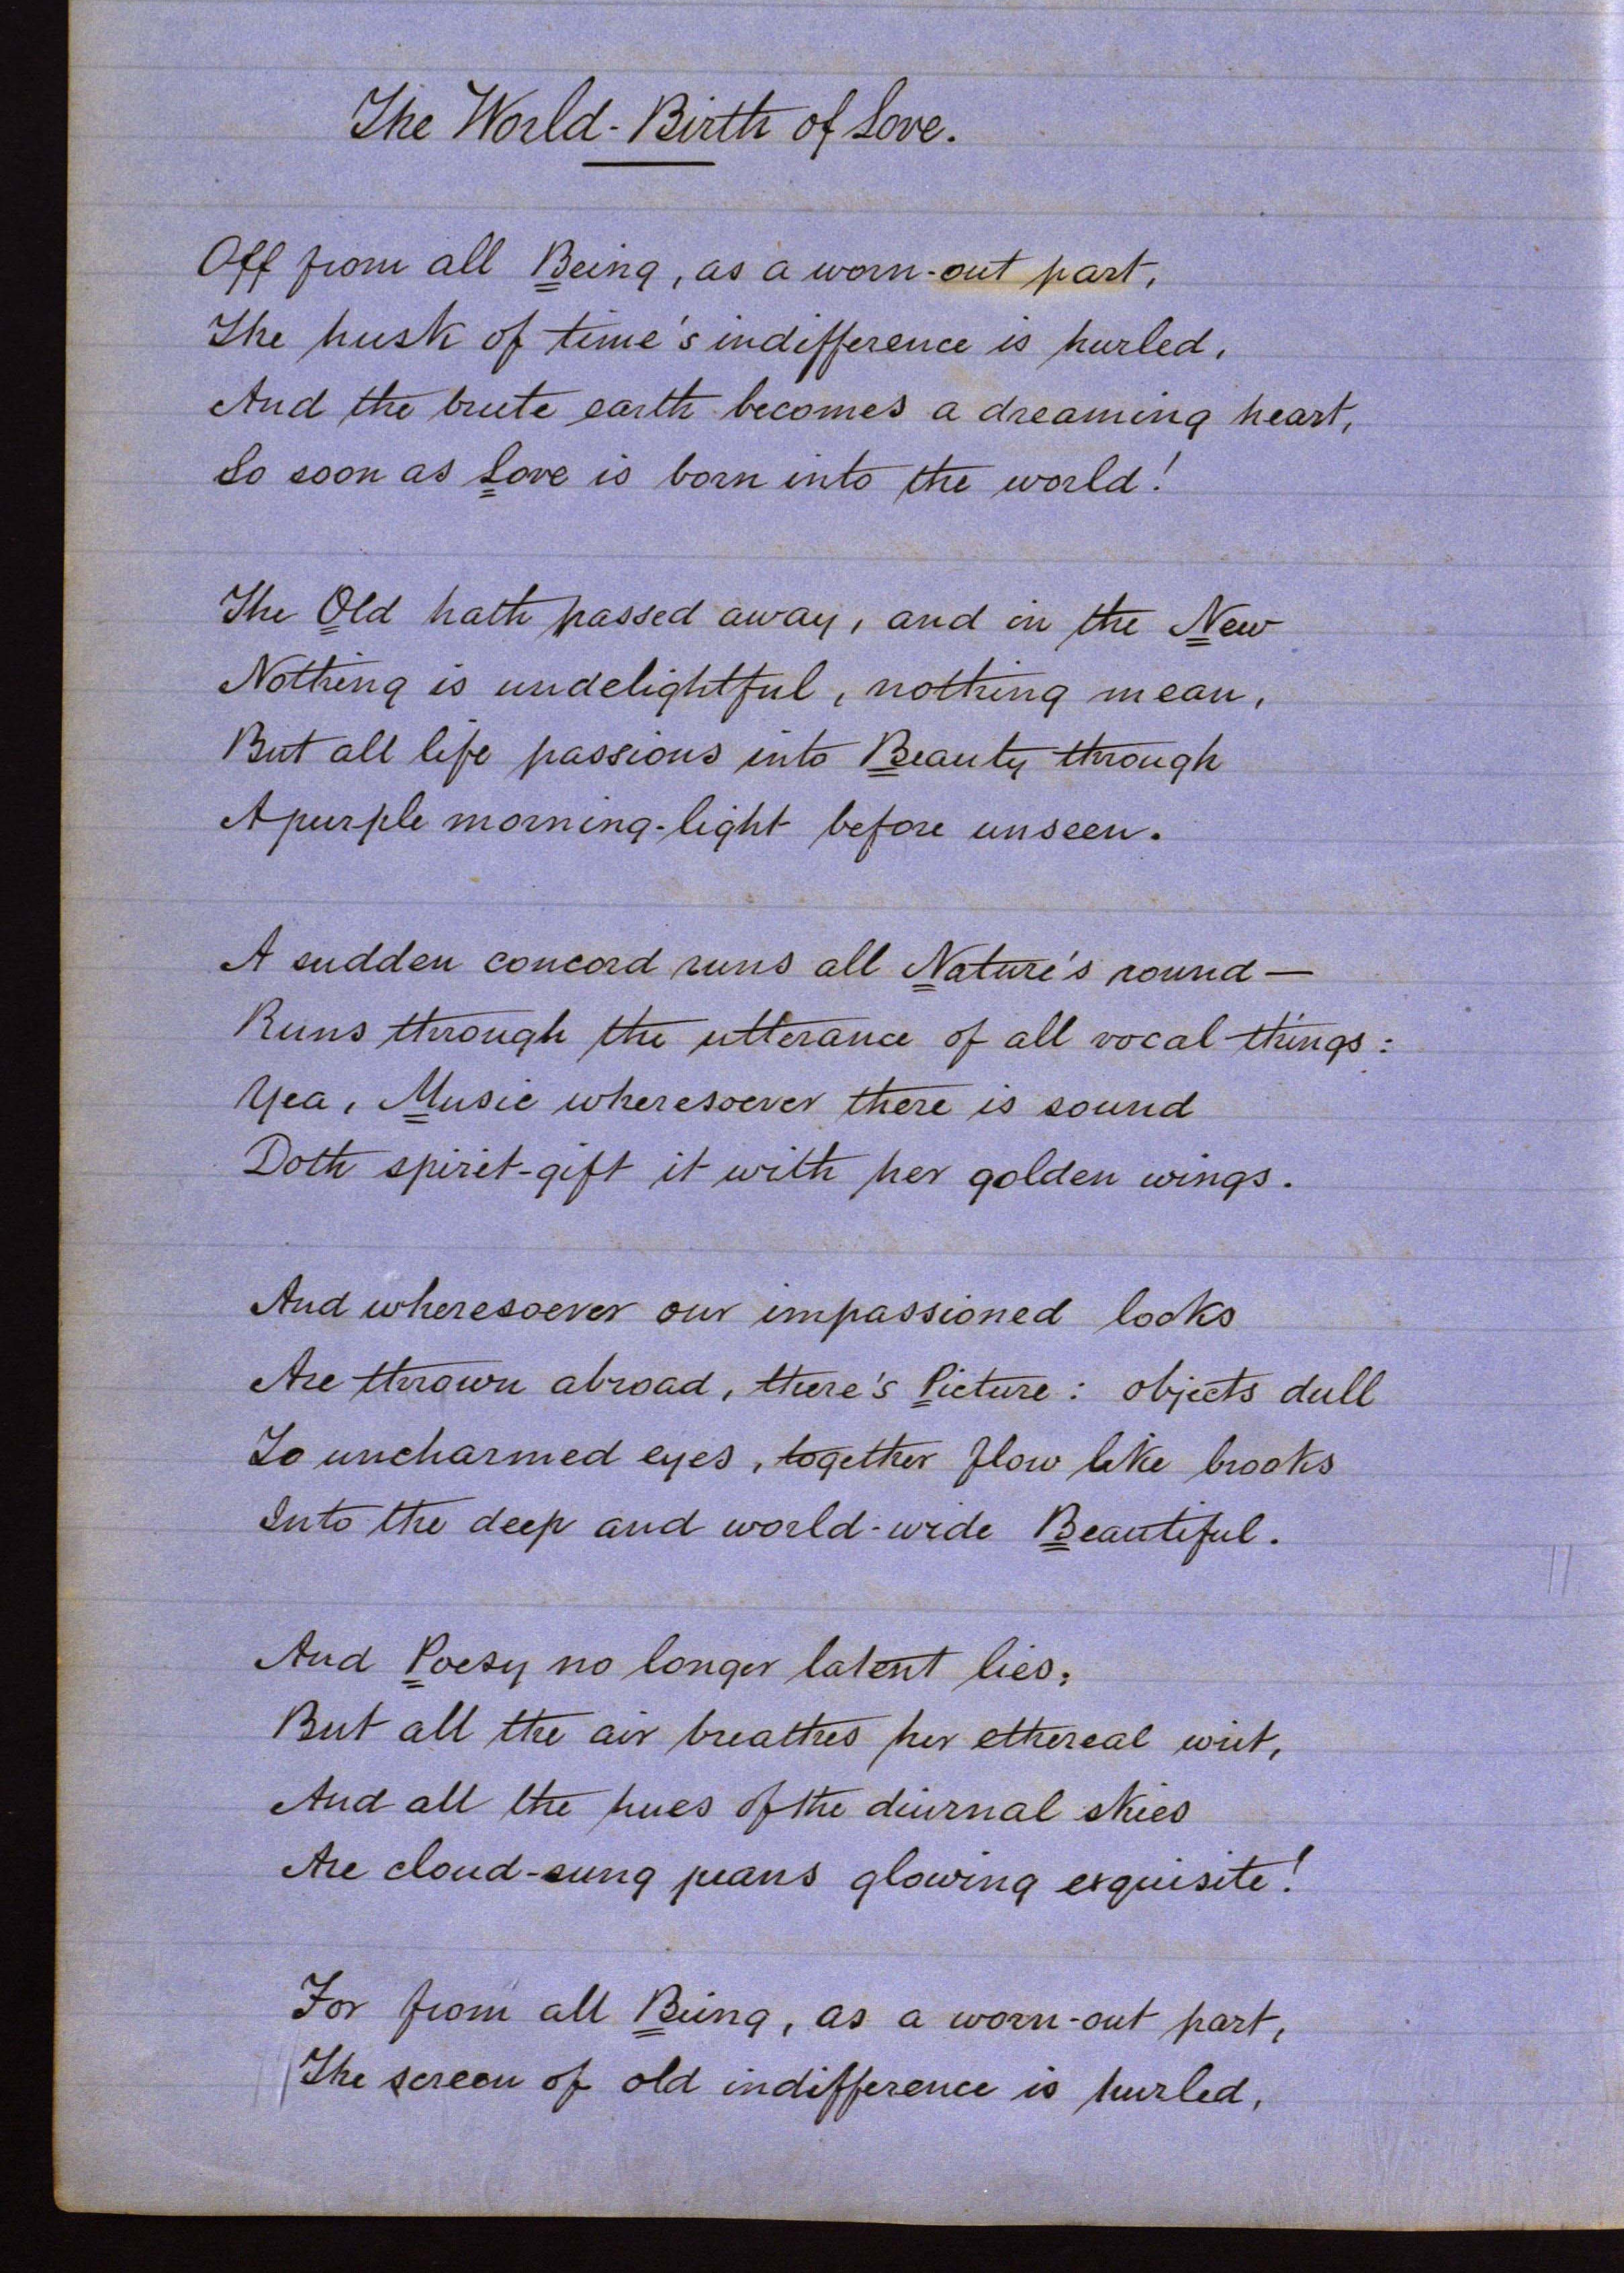 The World-Birth of Love.
Off from all Being, as a worn-out part,
The husk of time's indifference is hurled,
And the brute earth becomes a dreaming heart,
So soon as Love is born into the world!
The Old hath passed away, and in the New
Nothing is undelightful, nothing mean,
But all life passions into Beauty through
A purple morning-light before unseen.
A sudden concord runs all Nature's round—
Runs through the utterance of all vocal things:
Yea, Music wheresoever there is sound
Doth spirit-gift it with her golden wings.
And wheresoever our impassioned looks
Are thrown abroad, there's Picture: objects dull
To uncharmed eyes, together flow like brooks
Into the deep and world-wide Beautiful.
And Poesy no longer latent lies,
But all the air breathes her ethereal wit,
And all the hues of the diurnal skies
Are cloud-sung peans glowing exquisite!
For from all Being, as a worn-out part,
The screen of old indifference is hurled,